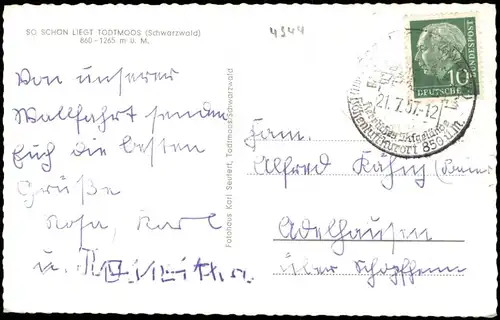 SO SCHÖN LIEGT TODTMOOS (Schwarzwald)
860 - 1265 m ü. M.
4344
Von unserer
Wallfahrt senden
Euch die besten
Grüße
Rosa, Karl
u.
Fotohaus Karl Seufert, Todtmoos-Schwarzwald
10
DEUTSCHE BUNDESPOST
21.7.57-12
Höhenluftkurort 850 ü.M.
Fam.
Alfred
Adelhausen
über Schopfheim